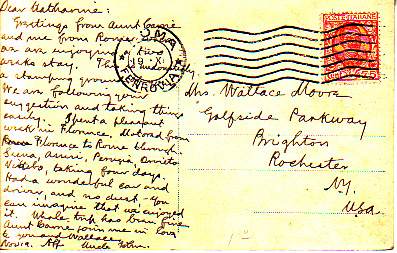 Dear Katharine:
Greetings from Aunt Carrie
and me from Rome.
We are enjoying a two
weeks stay. This
a stamping ground
We are following your
suggestion and taking things
easily. Spent a pleasant
week in Florence. Motored from
Florence to Rome through
Siena, Assisi, Perugia, Orvieto
Viterbo, taking four days.
Had a wonderful car and
driver, and no dust - you
can imagine that we enjoyed
it. Whole trip has been fine
Aunt Carrie joins me in love
to you and Wallace
Aff. Uncle John.
ROMA
19 XI
FERROVIA
POSTE ITALIANE
Mrs. Wallace Moore
Golfside Parkway
Brighton
Rochester
N.Y.
U.S.A.